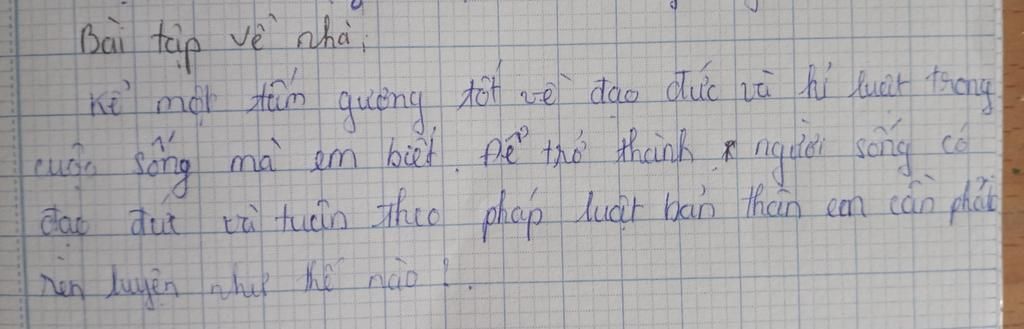 Bài tập về nhà:
Kể một tấm gương tốt về đạo đức và kỉ luật trong
cuộc sống mà em biết. Để thở thành người sống có
đạo đức và tuân theo pháp luật bản thân em cần phải
rèn luyện như thế nào?.